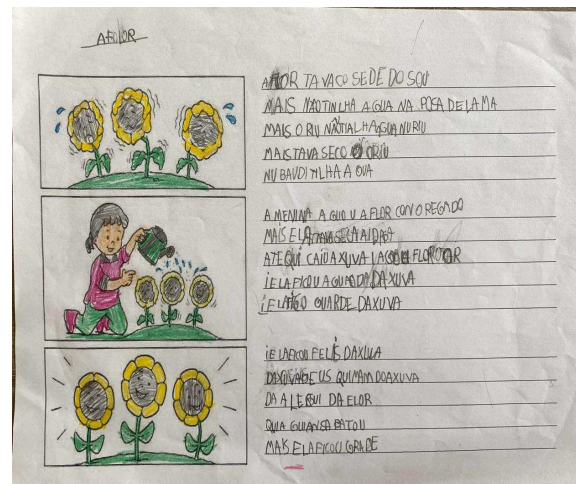 AFLOR
AFLOR TAVA CO SEDE DO SOU
MAIS NÃO TINLHA AGUA NA POSA DE LAMA
MAIS O RIU NÃO TIALHA AGUA NU RIU
MAIS TAVA SECO O ORIU
NU BAUDI TILHA A OUA
A MENINA AGUOU A FLOR CON O REGADO
MAIS ELA SECA AIDA
ATE QUI CAIU AXUVA LA COM FLOR
IE LA FICOU A GUARDA DAXUVA
IE LA GUARDE DAXUVA
IE LA FICOU FELIS DAXUVA
DEUS QUI MAMDOAXUVA
DA A LEGUI DA FLOR
QUIA
MAIS ELA FICOU GRADE